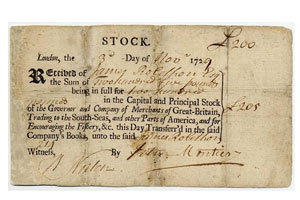 STOCK. £200
London, the 3d Day of Novr 1729
Received of
the Sum of Two hundred five pounds
being in full for two hundred
in the Capital and Principal Stock £205
of the Governor and Company of Merchants of Great-Britain,
Trading to the South-Seas, and other Parts of America, and for
Encouraging the Fishery, &c. this Day Transferr'd in the said
Company's Books, unto the said
Witness, By